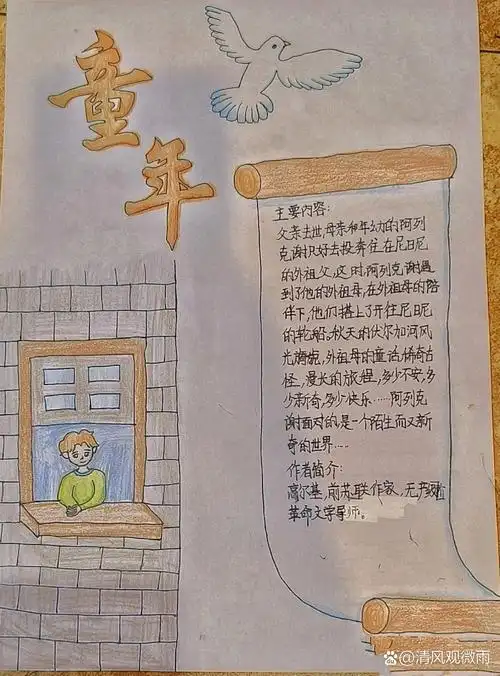 童年
主要内容:
父亲去世,母亲和年幼的阿列
克谢只好去投奔住在尼日尼
的外祖父,这时,阿列克谢遇
到了他的外祖母,在外祖母的陪
伴下,他们搭上了开往尼日尼
的轮船。秋天的伏尔加河风
光旖旎,外祖母的童话,稀奇古
怪,漫长的旅程,多少不安,多
少新奇,多少快乐……阿列克
谢面对的,是一个陌生而又新
奇的世界……
作者简介:
高尔基,前苏联作家,无产阶级
革命文学导师。
百度@清风观微雨